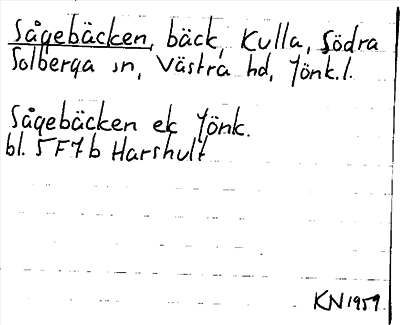 Sågebäcken, bäck, Kulla, Södra
Solberga sn, Västra hd, Jönk.l.
Sågebäcken ek Jönk.
bl. 5F7b Harshult
KN1959